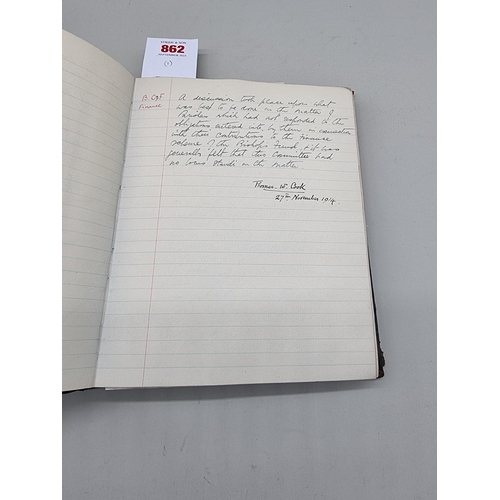 862
(1)
B. C & F
Finance
A discussion took place upon what
was best to be done in the matter of
Parishes which had not responded to the
obligations entered into by them in connection
with their contributions to the Finance
scheme of the Bishop's Fund & it was
generally felt that this Committee had
no locus standi in the matter
Thomas. W. Cook
27th November 1914.